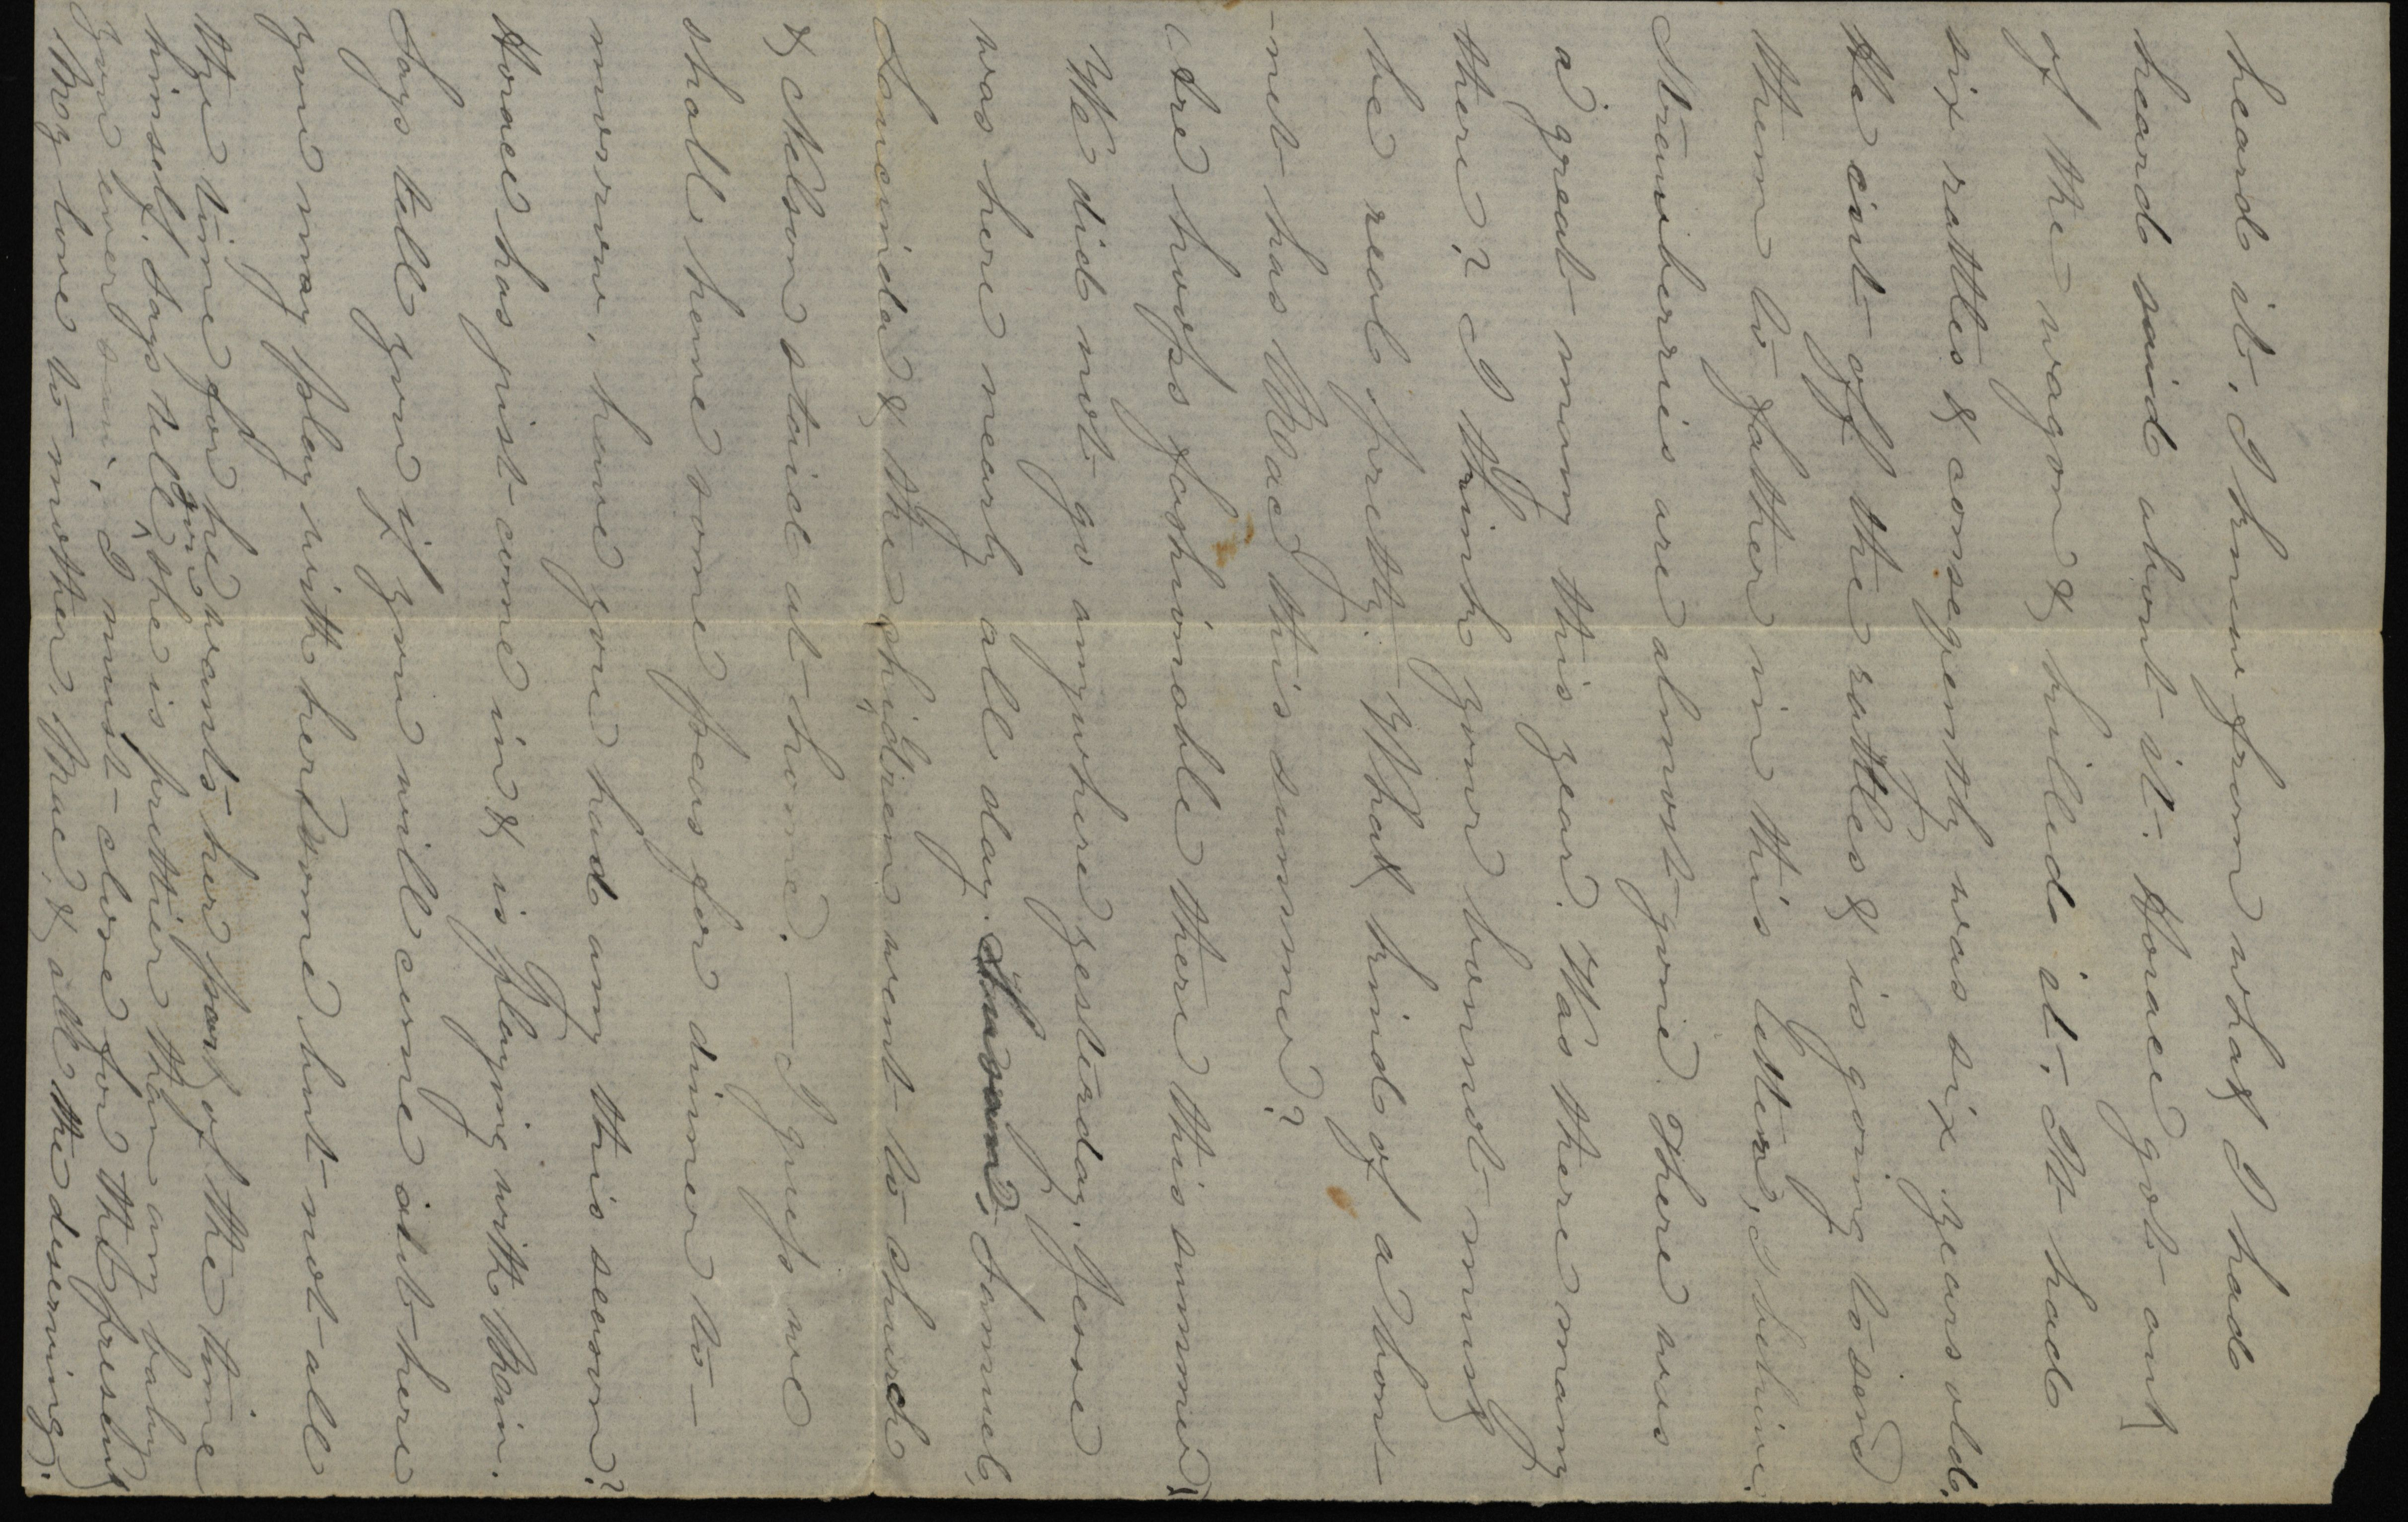 heard it, I knew from what I had
heard said about it. Horace got out
of the wagon & killed it. It had
six rattles & consequently was six years old.
He cut off the rattles & is going to send
them to father in this letter, I believe.
Strawberries are almost gone. There was
a great many this year. Was there many
there? I think your bonnet must
be real pretty. What kind of a bon-
-net has Mace this summer?
(Are hoops fashionable there this summer)
We did not go anywhere yesterday. Jane
was here nearly all day. Samuel,
Loucinda & the chidren went to church
& Nelson staid at home. — I guess we
shall have some peas for dinner to-
morrow, have you had any this season?
Horace has just come in & is playing with Rosin.
Says tell you if you will come out here
you may play with her some but not all
the time for he wants her part of the time
himself. Says tell you she is prettier than any baby
you ever saw. I must close for the present
My love to mother, Mace, & all the deserving.